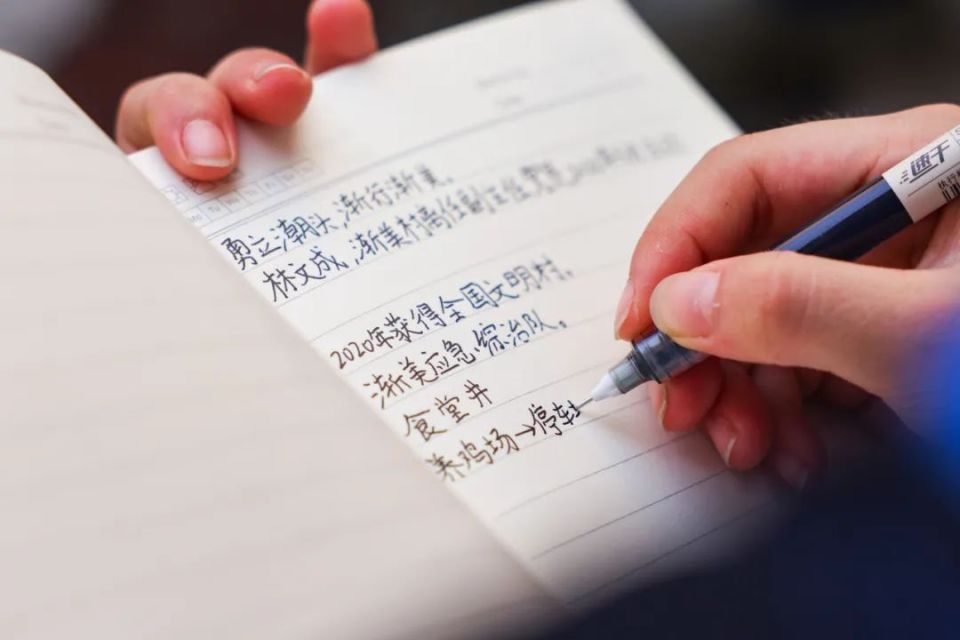 勇立潮头,渐行渐美。
林文成,渐美村
2020年获得全国文明村。
渐美应急,综治队。
食堂井
养鸡场→停车
速干